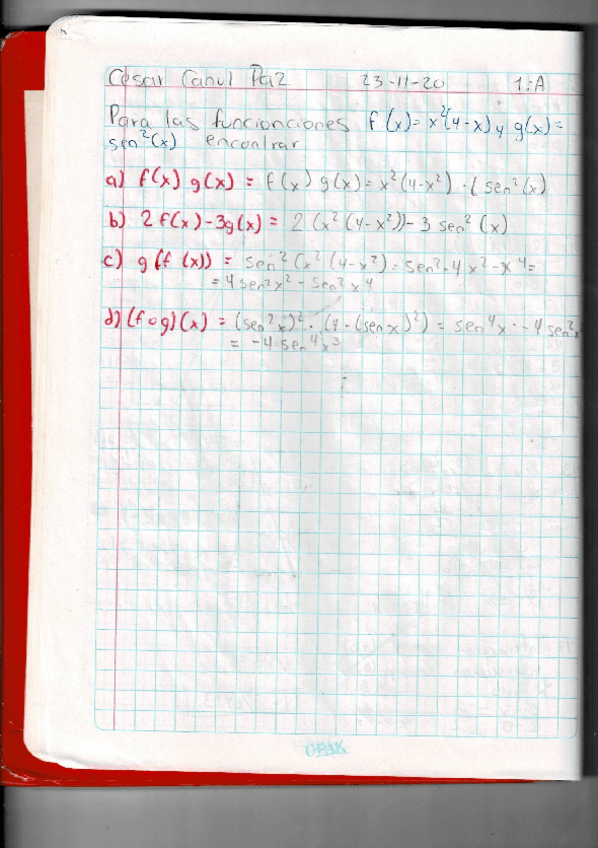 Cesar Canul Paz 23-11-20 1:A
Para las funcionciones f(x)=x²(4-x) y g(x)=
sen²(x) encontrar
a) f(x) g(x) = f(x) g(x) = x²(4-x²) · ( sen²(x)
b) 2f(x)-3g(x) = 2 (x²(4-x²))-3 sen² (x)
c) g(f (x)) = sen² (x² (4-x²) = sen² · 4x² - x⁴ =
= 4 sen²x² - sen²x⁴
d) (f∘g)(x) = (sen²x)² · (4-(sen x)²) = sen⁴x · -4 sen²x
= -4 sen⁴x³
OPAK